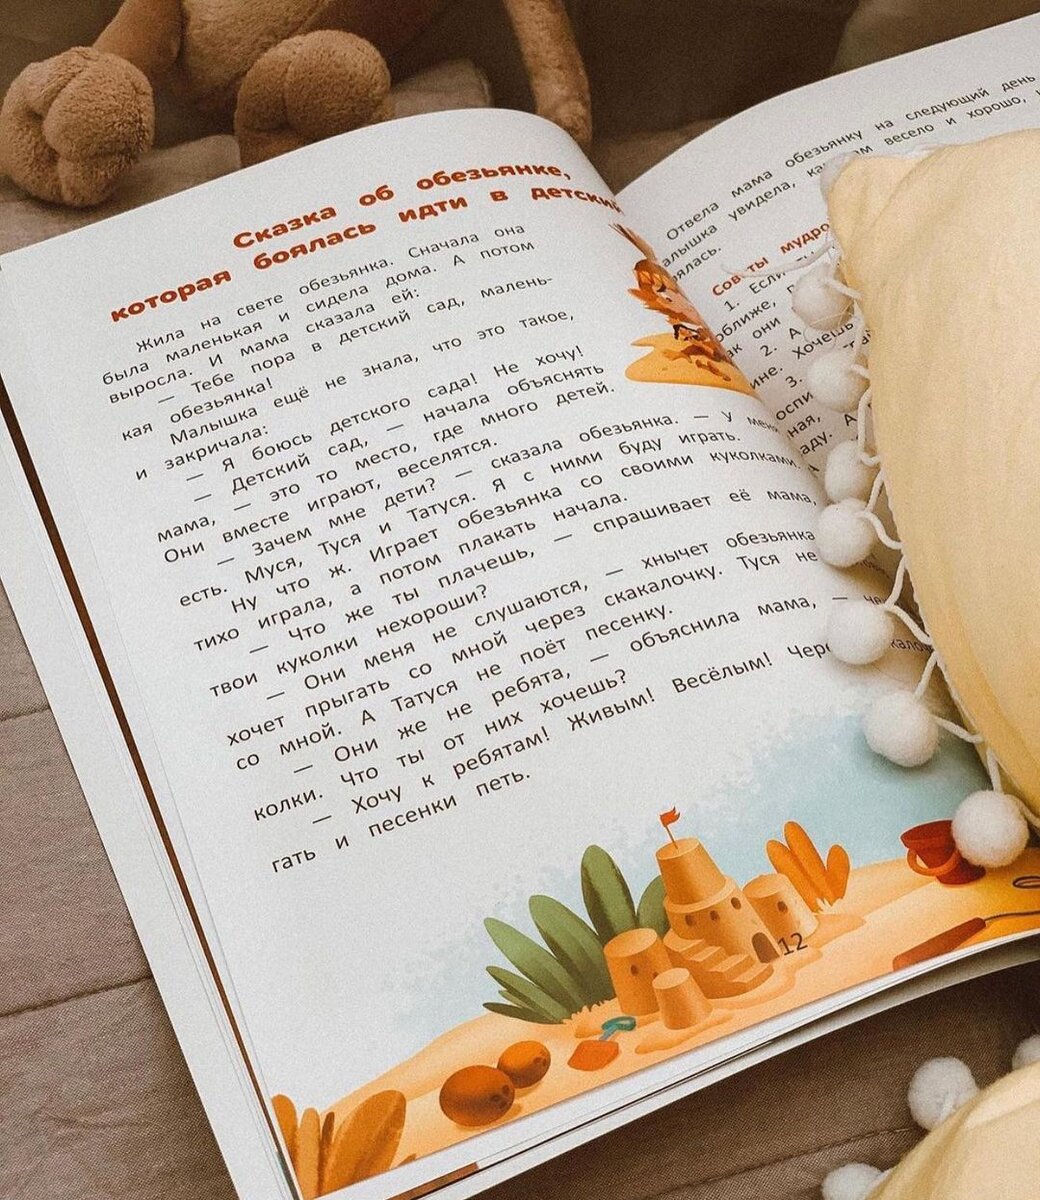 Сказка об обезьянке,
которая боялась идти в детский
Жила на свете обезьянка. Сначала она
была маленькая и сидела дома. А потом
выросла. И мама сказала ей:
— Тебе пора в детский сад, малень-
кая обезьянка!
Малышка ещё не знала, что это такое,
и закричала:
— Я боюсь детского сада! Не хочу!
— Детский сад, — начала объяснять
мама, — это то место, где много детей.
Они вместе играют, веселятся.
— Зачем мне дети? — сказала обезьянка. — у меня
есть. Муся, Туся и Татуся. Я с ними буду играть.
Ну что ж. Играет обезьянка со своими куколками.
тихо играла, а потом плакать начала.
— Что же ты плачешь, — спрашивает её мама,
твои куколки нехороши?
— Они меня не слушаются, — хнычет обезьянка
хочет прыгать со мной через скакалочку. Туся не
со мной. А Татуся не поёт песенку.
— Они же не ребята, — объяснила мама, —
колки. Что ты от них хочешь?
— Хочу к ребятам! Живым! Весёлым!
гать и песенки петь.
12
Отвела мама обезьянку на следующий день
увидела, весело и хорошо,
Советы
1. Если
2. А
Хочешь
3.